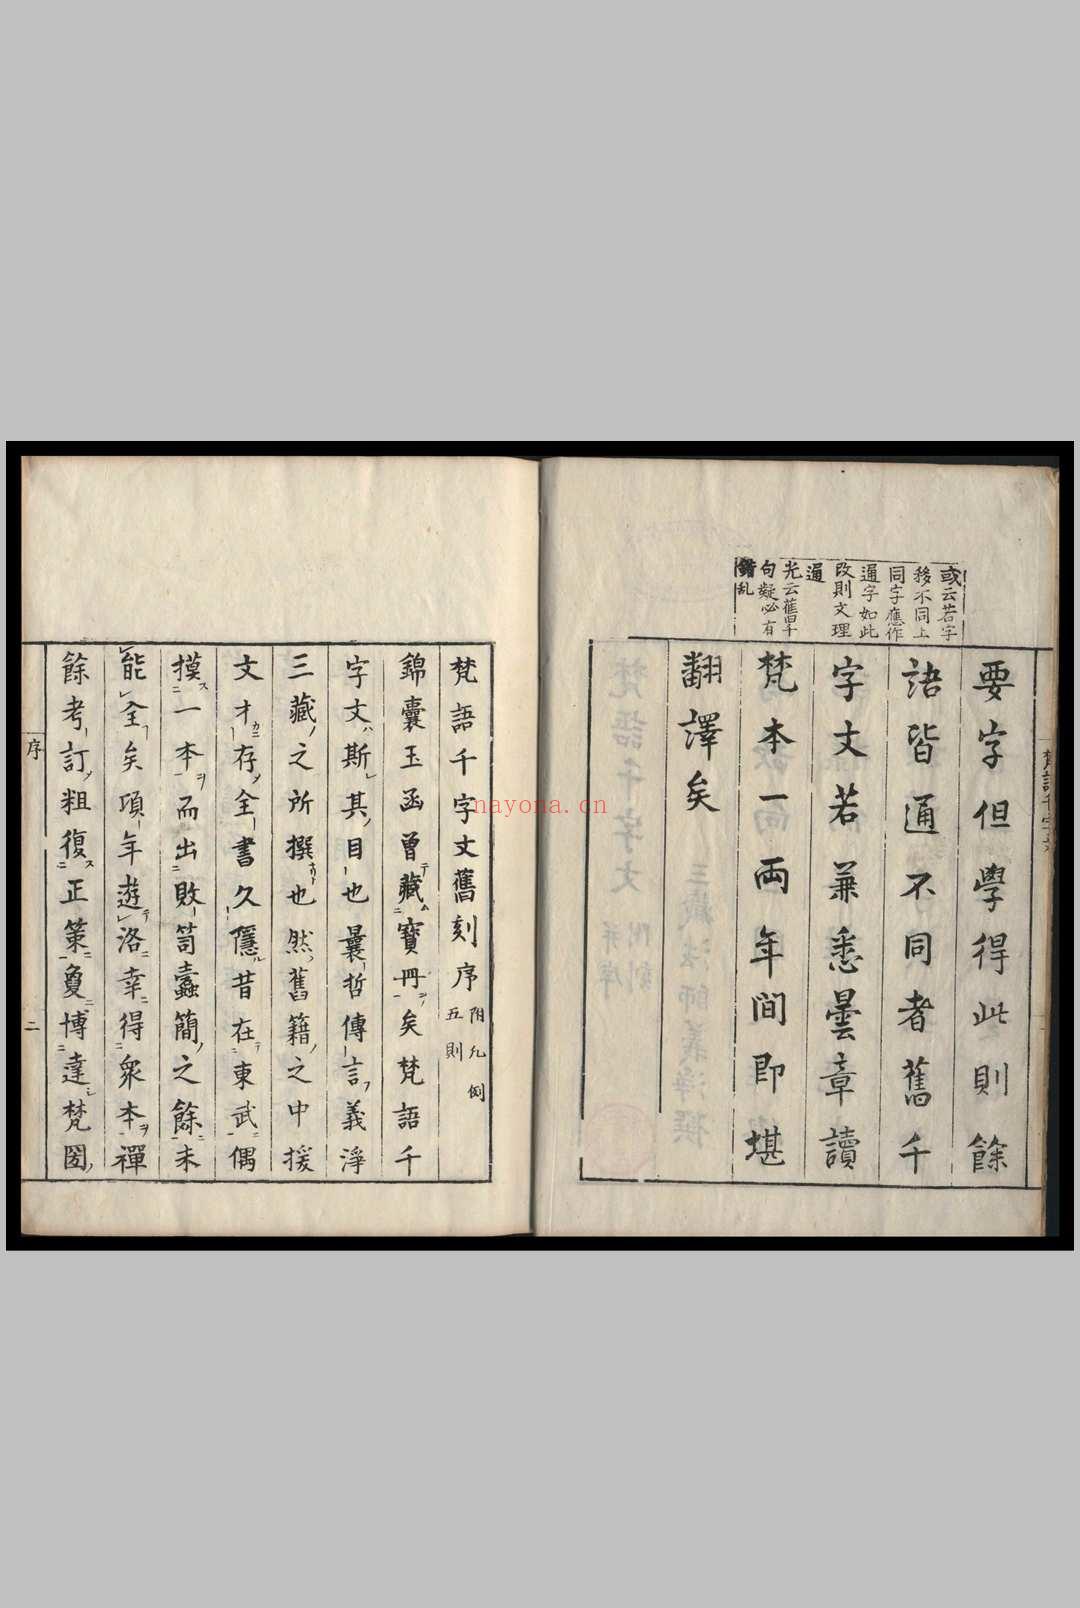 或云若字
移不同上
同字應作
通字如此
改則文理
通
光云舊千
句疑必有
錯乱
要字但學得此則餘
語皆通不同者舊千
字文若兼悉曇章讀
梵本一兩年間即堪
翻譯矣
梵語千字文舊刻序 附凡例五則
錦囊玉函曾藏寶冊矣梵語千
字文斯其目也曩哲傳言義淨
三藏之所撰也然舊籍之中援
文才存全書久隱昔在東武偶
摸一本而出敗笥蠹簡之餘未
能全矣項年遊洛幸得衆本禪
餘考訂粗復正策敻博達梵圏
序
二
nayona.cn